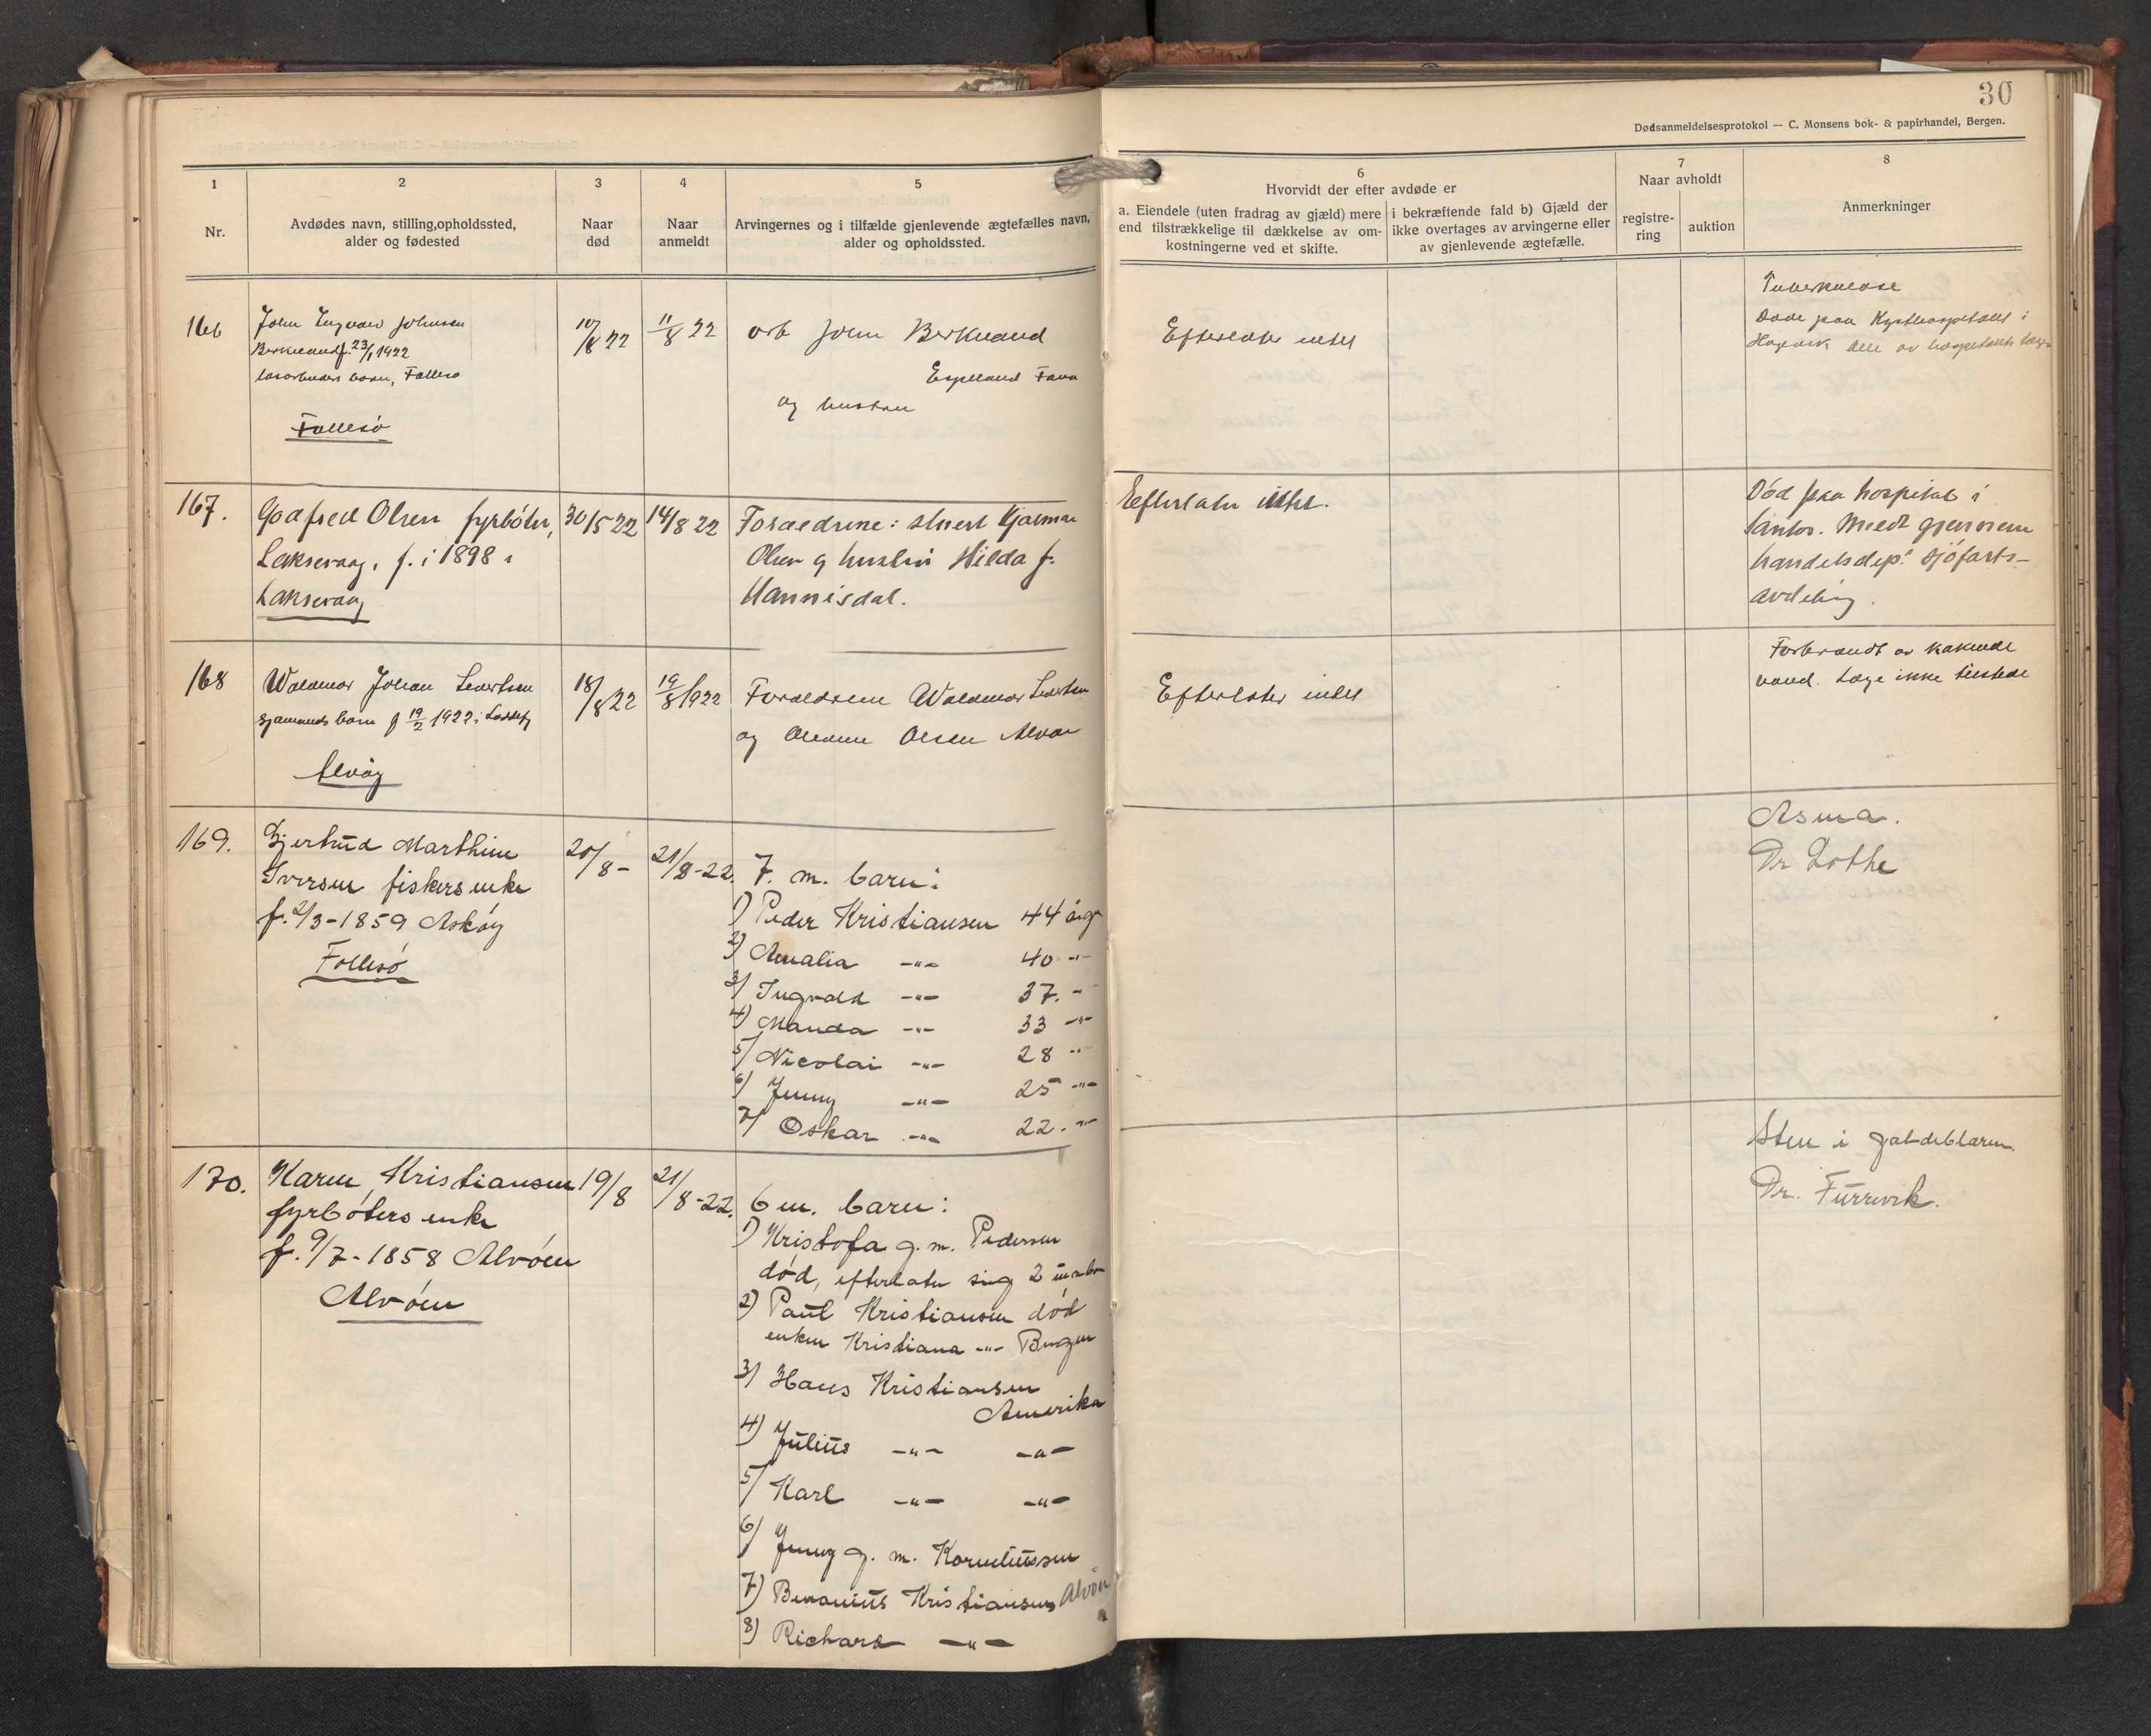 30
Dødsanmeldelsesprotokol — C. Monsens bok- & papirhandel, Bergen.
1
Nr.
2
Avdødes navn, stilling, opholdssted,
alder og fødested
3
Naar
død
4
Naar
anmeldt
5
Arvingernes og i tilfælde gjenlevende ægtefælles navn,
alder og opholdssted.
6
Hvorvidt der efter avdøde er
a. Eiendele (uten fradrag av gjæld) mere
end tilstrækkelige til dækkelse av om-
kostningerne ved et skifte.
i bekræftende fald b) Gjæld der
ikke overtages av arvingerne eller
av gjenlevende ægtefælle.
7
Naar avholdt
registre-
ring
auktion
8
Anmerkninger
166
John Ingvald Johnsen
Berkeland f. 23/1 1922
barn, Follesø
Follesø
10/8 22
11/8 22
arb John Berkeland
Espeland Fana
og hustru
Efterlater intet
Tuberkulose
Døde paa Kysthospitalet i
Hagevik
167.
Godfred Olsen fyrbøter,
Laksevaag, f. i 1898 i
Laksevaag
30/5 22
14/8 22
Forældrene: stuert Hjalmar
Olsen og hustru Hilda f.
Hannisdal.
Efterlater intet.
Død paa hospital i
Santos. Meldt gjennem
handelsdep. sjøfarts-
avdeling.
168
Waldemar Johan Sivertsen
sjømands barn f 19/2 1922 i
Alvøy
18/8 22
19/8 1922
Forældrene Waldemar Sivertsen
og Olsen Alvøen
Efterlater intet
Forbrændt av kokende
vand. Læge ikke tilstede
169.
Gjertrud Marthine
Iversen fiskers enke
f. 2/3-1859 Askøy
Follesø
20/8 -
21/8-22.
7. m. barn:
1) Peder Kristiansen 44 aar
2) Amalia -"- 40 -"-
3) Ingvald -"- 37. -"-
4) Manda -"- 33 -"-
5) Nicolai -"- 28 -"-
6) Jenny -"- 25 -"-
7) Oskar -"- 22. -"-
Asma.
Dr Lothe
170.
Karen Kristiansen
fyrbøters enke
f. 9/7-1858 Alvøen
Alvøen
19/8
21/8-22.
6 m. barn:
1) Kristofa g. m. Pedersen
død, efterlater sig 2 barn
2) Paul Kristiansen død
enken Kristiana -"- Bergen
3) Hans Kristiansen
Amerika
4) Julius -"- -"-
5) Karl -"- -"-
6) Jenny g. m. Korneliussen
7) Kristiansen Alvøen
8) Richard -"-
Sten i galdeblæren.
Dr. Furrevik.